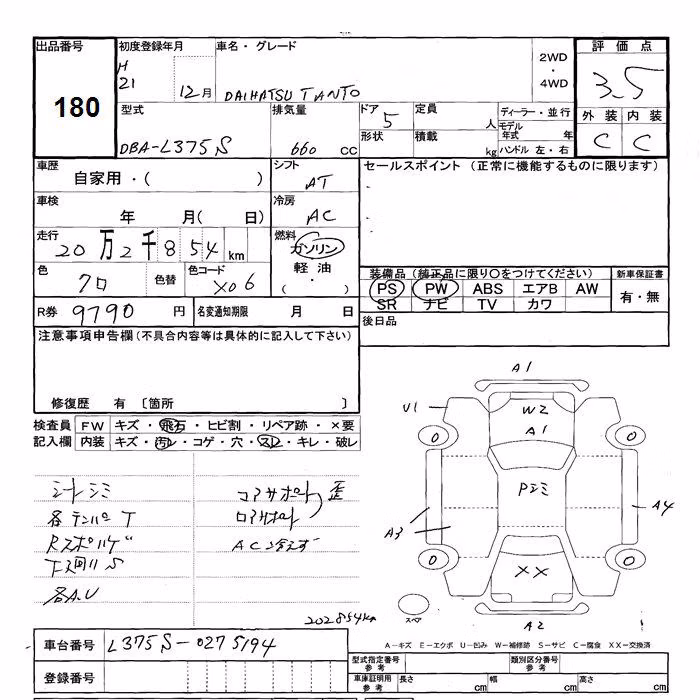 出品番号 初度登録年月 車名・グレード 2WD・4WD 評価点
180
H 21 12月 DAIHATSU TANTO 3.5
型式 排気量 ドア 5 定員 人 ディーラー・並行 外装 内装
DBA-L375S 660 CC 形状 積載 kg モデル年式 年 ハンドル 左・右 C C
車歴 自家用・( ) シフト AT セールスポイント (正常に機能するものに限ります)
車検 年 月( 日) 冷房 AC
走行 20万2千854km 燃料 ガソリン・軽油・( )
色 クロ 色替 色コード X06
装備品(純正品に限り○をつけてください) 新車保証書
PS PW ABS エアB AW 有・無
SR ナビ TV カワ
R券 9790円 名変通知期限 月 日 後日品
注意事項申告欄(不具合内容等は具体的に記入して下さい)
修復歴 有〔箇所 〕
検査員 FW キズ・飛石・ヒビ割・リペア跡・×要
記入欄 内装 キズ・汚レ・コゲ・穴・スレ・キレ・破レ
シートシミ コアサポート歪
各テンパT ロアサポート
AC冷えず
下廻りS
各A.U
202854km
A1
U1 W2
A1
0 0
Pシミ
A3 A4
0 0
XX
スペア
A2
A-キズ E-エクボ U-凹み W-補修跡 S-サビ C-腐食 XX-交換済
車台番号 L375S-0275194
型式指定番号 参考 類別区分番号 参考
登録番号 車庫証明用 参考 長さ cm 幅 cm 高さ cm